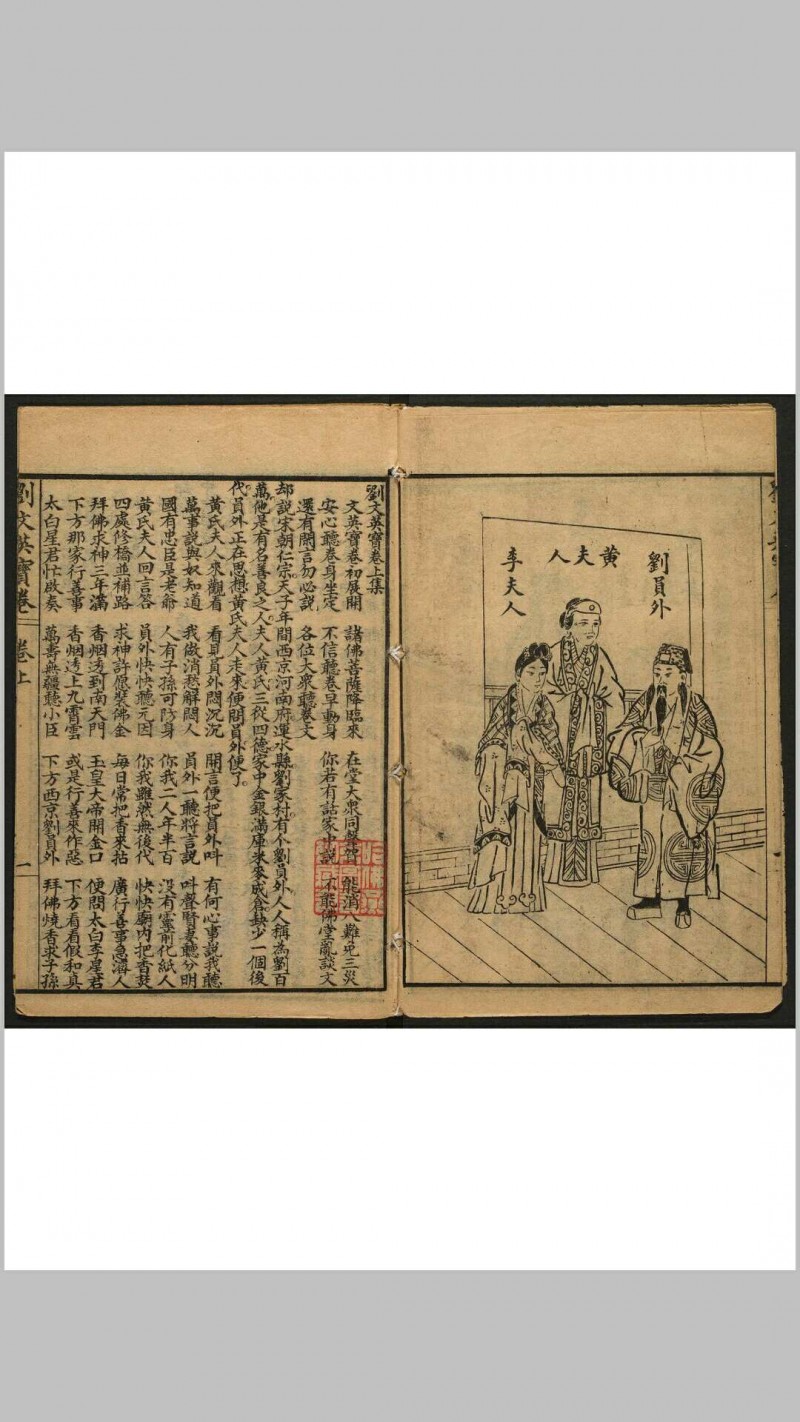 劉員外
黄夫人
李夫人
劉文英寶卷上集
文英寶卷初展開 諸佛菩薩降臨來 在堂大衆同聲賀 能消八難免三災
安心聽卷身坐定 不信聽卷早動身 你若有話家中說 不能佛堂亂談文
還有閑言勿必說 各位大衆聽卷文
却說宋朝仁宗天子年間西京河南府運水縣劉家村有个劉員外人人稱為劉百
萬他是有名善良之人夫人黃氏三從四德家中金銀滿庫米麥成倉缺少一個後
代員外正在思想黃氏夫人走來便問員外便了
黃氏夫人來觀看 看見員外悶沉沉 開言便把員外叫 有何心事說我聽
萬事說與奴知道 我做消愁解悶人 員外一聽將言說 叫聲賢妻聽分明
國有忠臣是老爺 人有子孫可防身 你我二人年半百 沒有靈前化紙人
黃氏夫人回言答 員外快快聽元因 你我雖然無後代 快快廟內把香焚
四處修橋並補路 求神許愿裝佛金 每日常把香來拈 廣行善事急濟人
拜佛求神三年滿 香烟透到南天門 玉皇大帝開金口 便問太白李星君
下方那家行善事 香烟透上九霄雲 或是行善來作惡 下方看看假和真
太白星君忙啟奏 萬壽無疆聽小臣 下方西京劉員外 拜佛燒香求子孫
劉文英寶卷 卷上 一